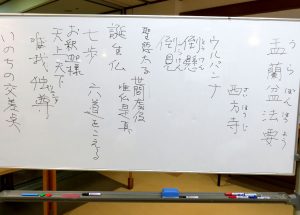 盂蘭盆法要
うらぼんほうよう
西方寺
さいほうじ
ウルバンナ
倒懸
倒見
聖徳太子
世間虚仮
唯仏是真
誕生仏
七歩
六道をこえる
お釈迦様
天上天下
唯我独尊
いのちの交差点